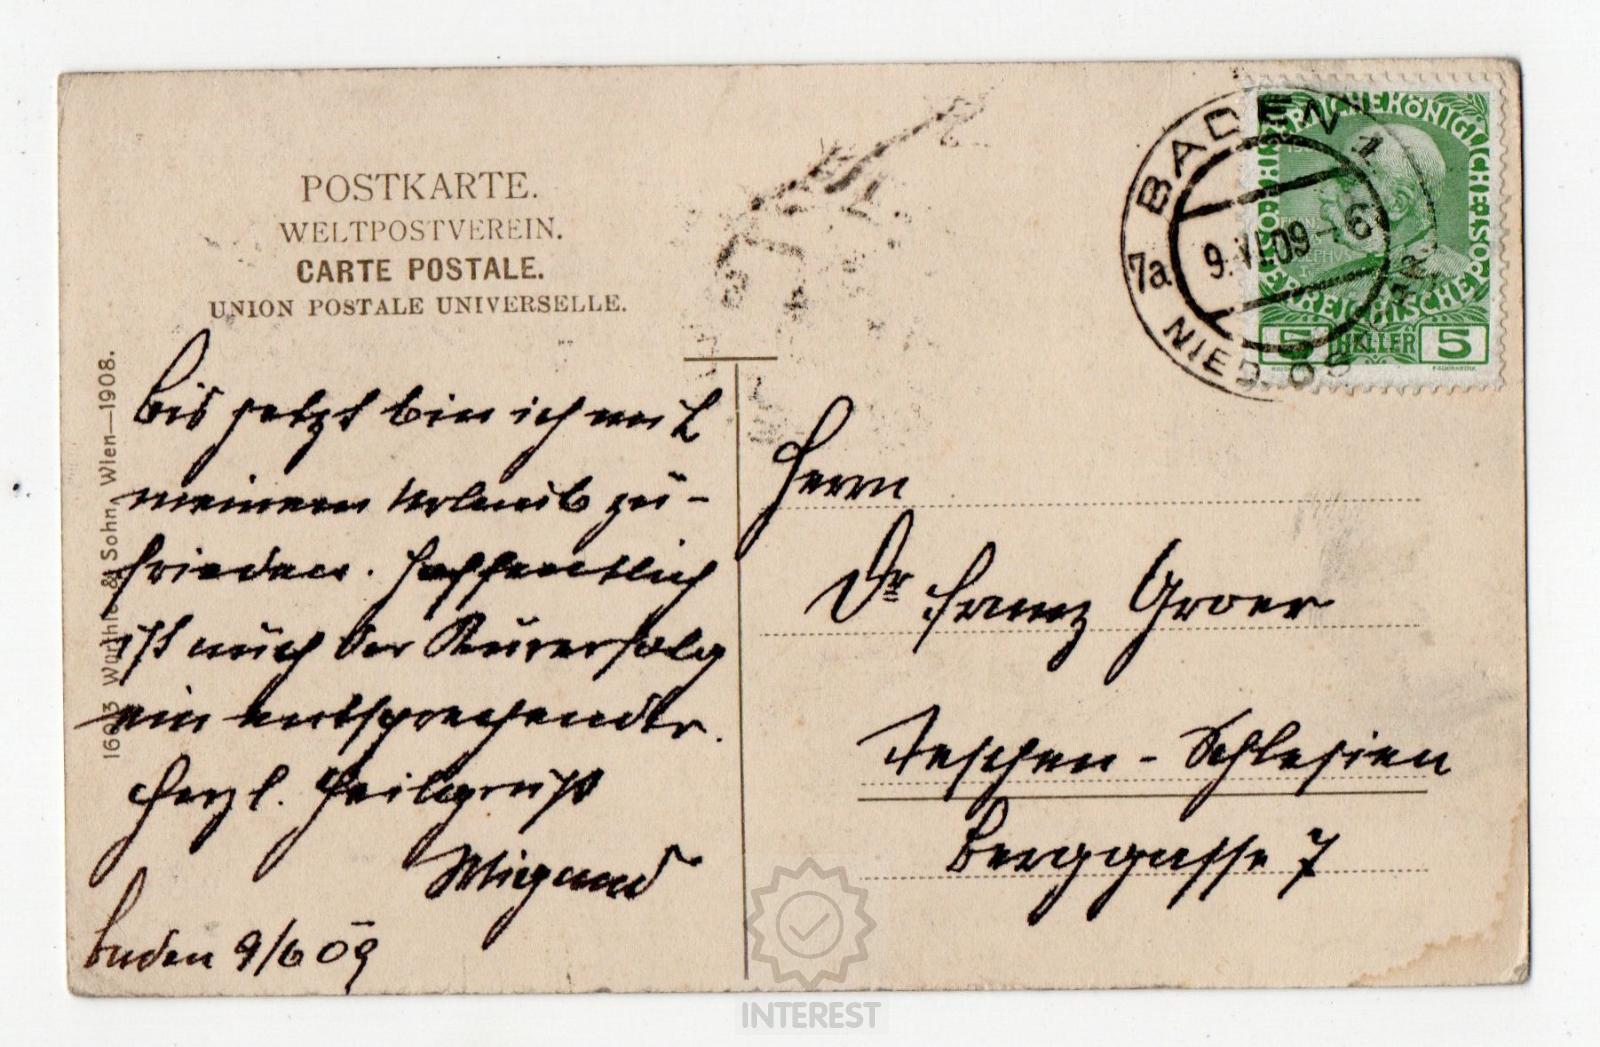 POSTKARTE.
WELTPOSTVEREIN.
CARTE POSTALE.
UNION POSTALE UNIVERSELLE.
Bis jetzt bin ich mit
meinem Urlaub zu-
frieden. Hoffentlich
ist auch der Kurerfolg
ein entsprechender.
Herzl. Heilgruß
Wiegand
Baden 9/6 09
& Sohn, Wien—1908.
BADEN 1
7a
9.VI.09-6
NIED. OST
KAIS. KÖNIGLICHE ÖSTERREICHISCHE POST
5 HELLER 5
Herrn
Dr Franz Groer
Teschen - Schlesien
Berggasse 7
INTEREST